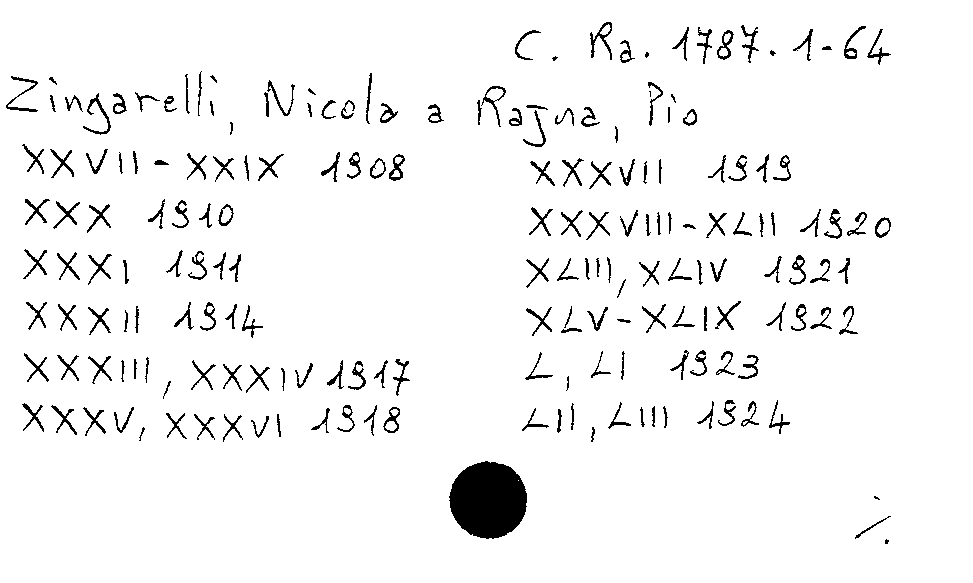 C. Ra. 1787. 1-64
Zingarelli, Nicola a Rajna, Pio
XXVII - XXIX 1908
XXX 1910
XXXI 1911
XXXII 1914
XXXIII, XXXIV 1917
XXXV, XXXVI 1918
XXXVII 1919
XXXVIII - XLII 1920
XLIII, XLIV 1921
XLV - XLIX 1922
L, LI 1923
LII, LIII 1924
./.